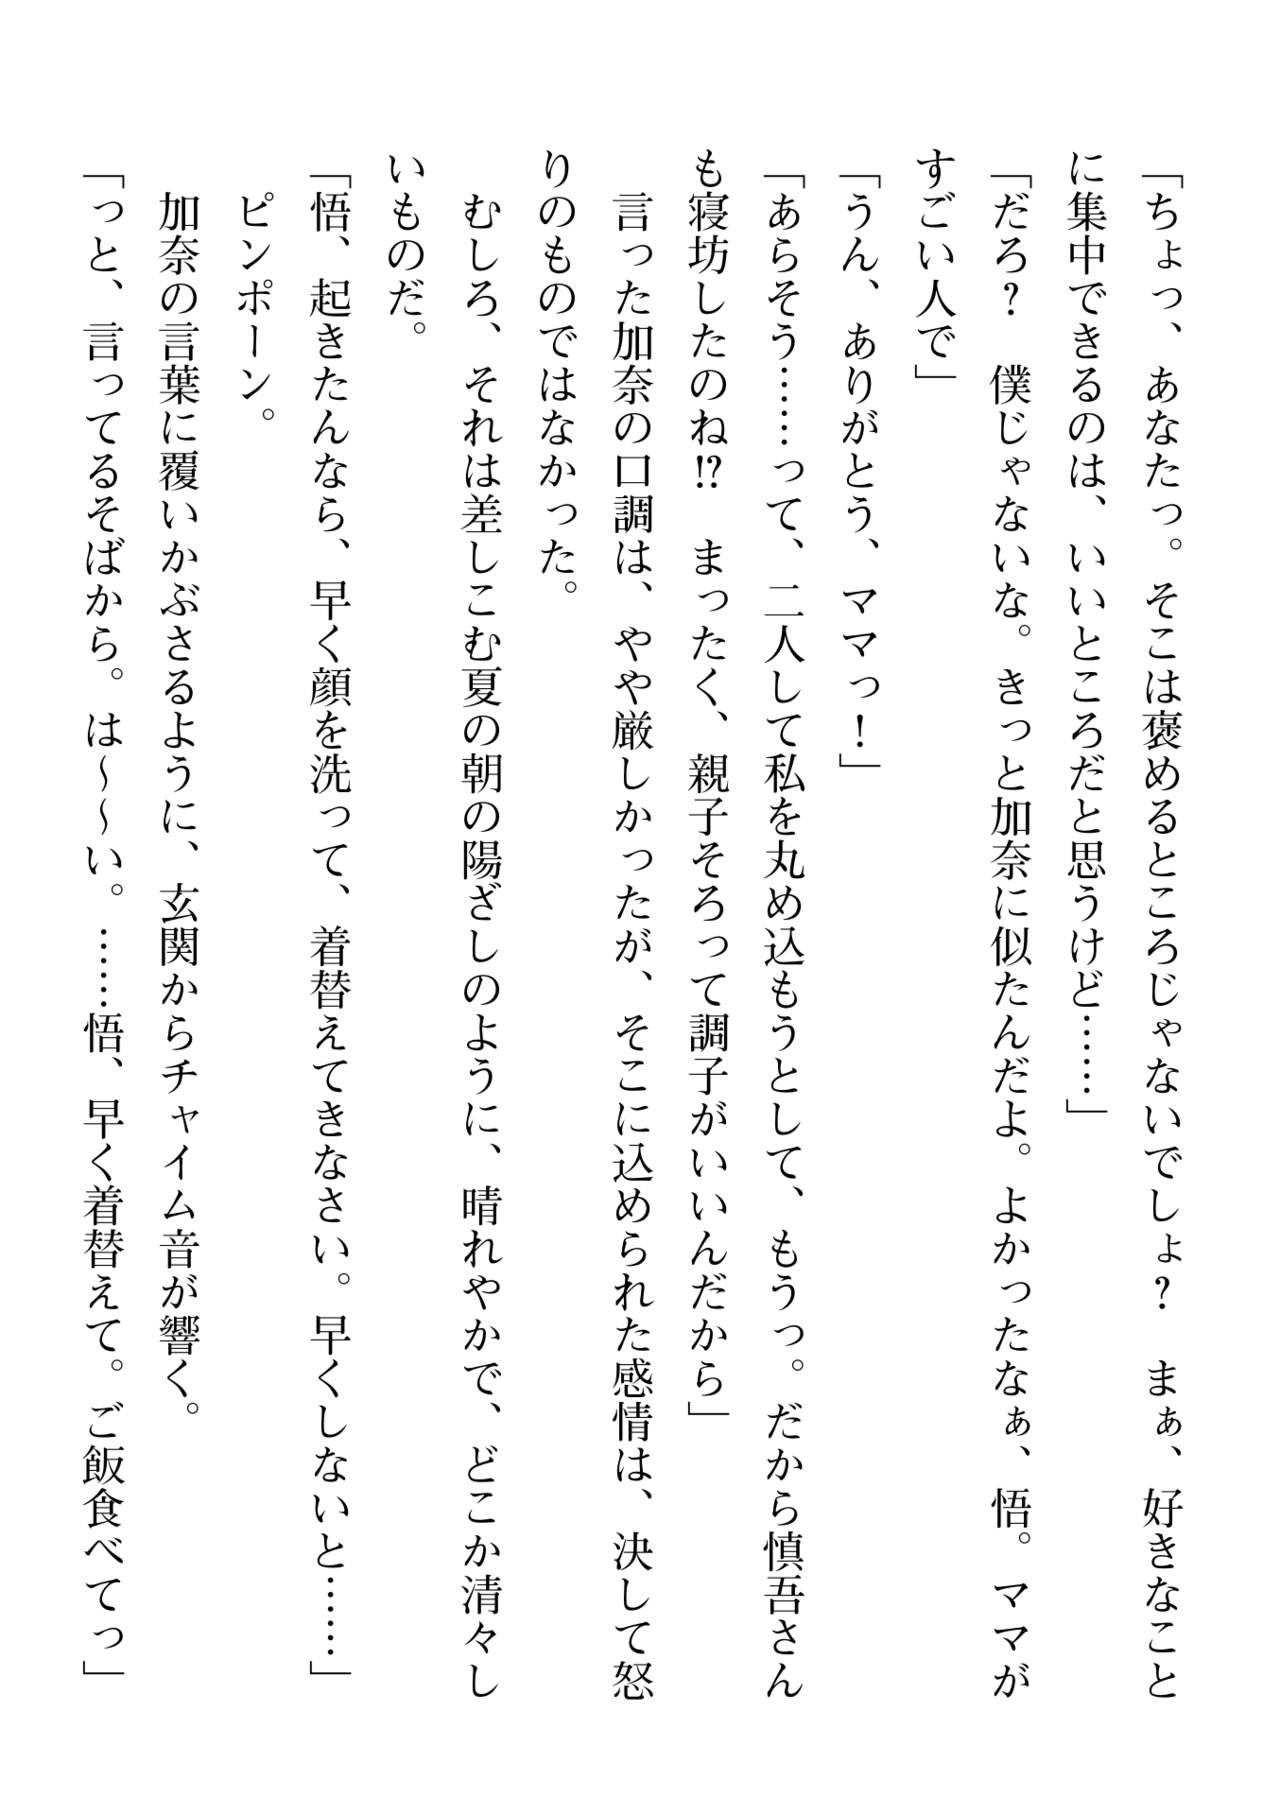 「ちょっ、あなたっ。そこは褒めるところじゃないでしょ？　まぁ、好きなこと
に集中できるのは、いいところだと思うけど……」
「だろ？　僕じゃないな。きっと加奈に似たんだよ。よかったなぁ、悟。ママが
すごい人で」
「うん、ありがとう、ママっ！」
「あらそう……って、二人して私を丸め込もうとして、もうっ。だから慎吾さん
も寝坊したのね!?　まったく、親子そろって調子がいいんだから」
　言った加奈の口調は、やや厳しかったが、そこに込められた感情は、決して怒
りのものではなかった。
　むしろ、それは差しこむ夏の朝の陽ざしのように、晴れやかで、どこか清々し
いものだ。
「悟、起きたんなら、早く顔を洗って、着替えてきなさい。早くしないと……」
　ピンポーン。
　加奈の言葉に覆いかぶさるように、玄関からチャイム音が響く。
「っと、言ってるそばから。は～～い。……悟、早く着替えて。ご飯食べてっ」